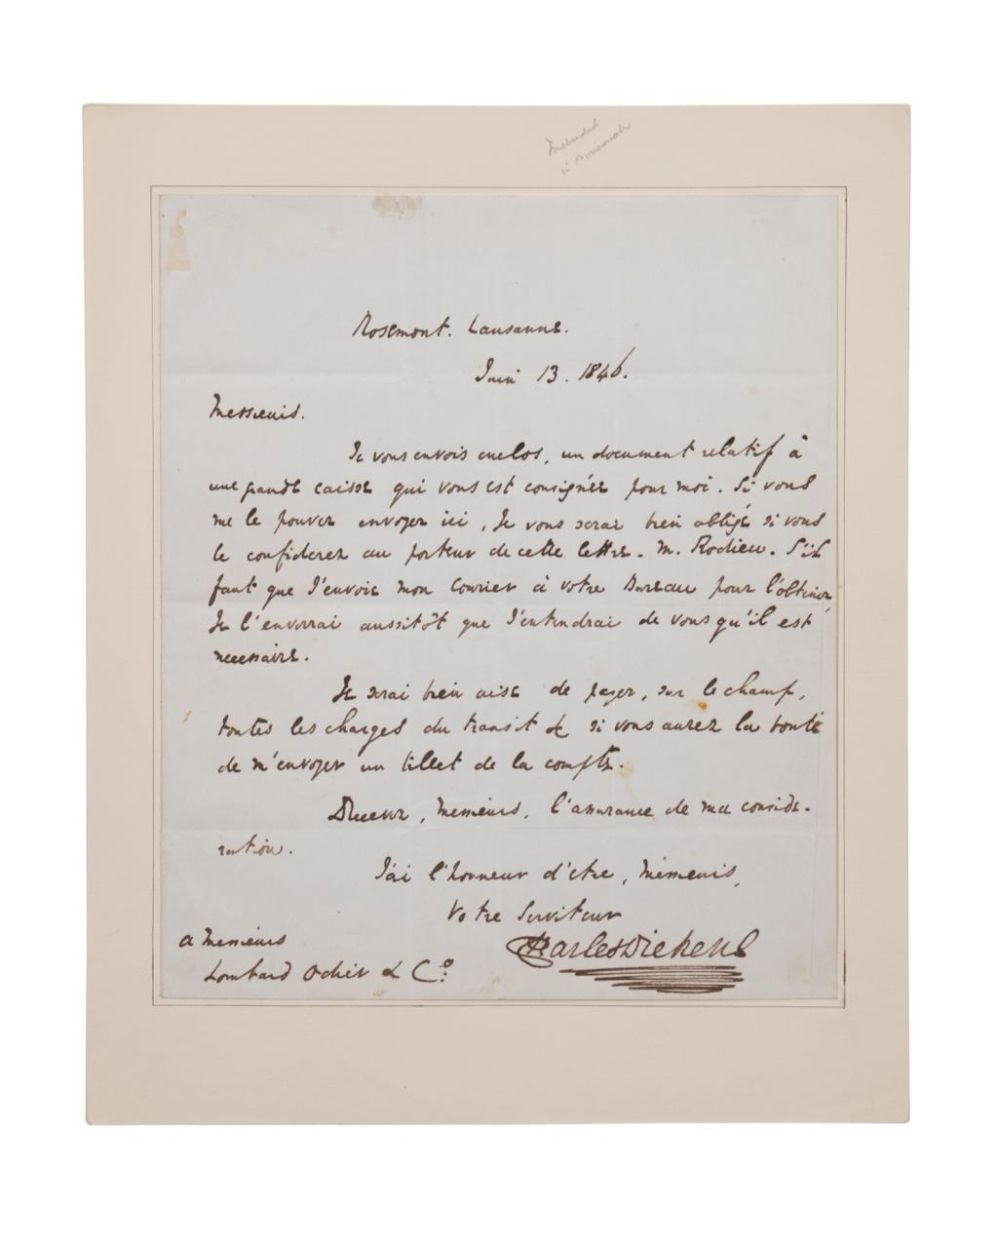 Rosemont. Lausanne.
Juin 13. 1846.
Messieurs.
Je vous envois enclos, un document relatif à
une grande caisse qui vous est consignée pour moi. Si vous
me le pouvez envoyer ici, Je vous serai bien obligé si vous
le confiderez au porteur de cette lettre. M. Rodieu. S'il
faut que J'envoie mon Courier à votre Bureau pour l'obtenir,
Je l'enverrai aussitôt que J'entendrai de vous qu'il est
necessaire.
Je serai bien aise de payer, sur le champ,
toutes les charges du transit &c si vous aurez la bonté
de m'envoyer un billet de la compte.
Recevez, Messieurs, l'assurance de ma conside-
ration.
J'ai l'honneur d'être, Messieurs,
Votre Serviteur
Charles Dickens
a Messieurs
Lombard Odier & Co.